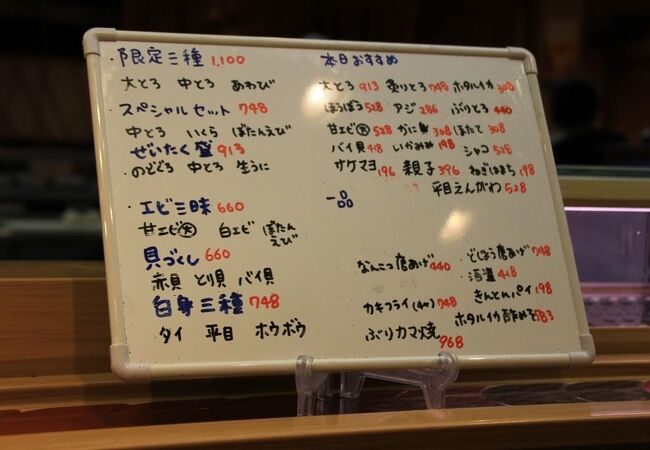 限定三種 1,100
大とろ 中とろ あわび
スペシャルセット 748
中とろ いくら ぼたんえび
ぜいたく盛 913
のどぐろ 中とろ 生うに
エビ三昧 660
甘エビ大 白エビ ぼたんえび
貝づくし 660
赤貝 とり貝 バイ貝
白身三種 748
タイ 平目 ホウボウ
本日おすすめ
大とろ 913 炙りとろ 748 ホタルイカ 308
ほうぼう 528 アジ 286 ぶりとろ 440
甘エビ大 528 かに 308 ほたて 308
バイ貝 418 いかみみ 198 シャコ 528
サケマヨ 196 親子 396 ねぎはまち 198
平目えんがわ 528
一品
なんこつ唐あげ 440 どじょう唐あげ 748
酒盗 418
カキフライ(4ヶ) 748 きんとんパイ 198
ぶりカマ焼 968 ホタルイカ酢みそ 583